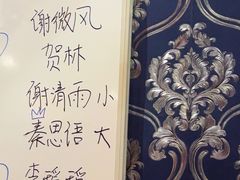 谢微风
贺林
谢清雨 小
秦思语 大
李瑶瑶